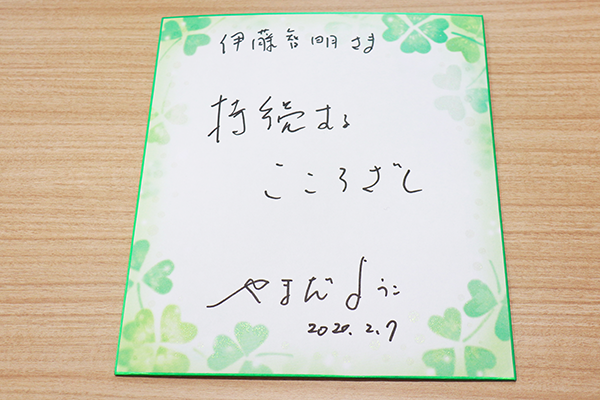 伊藤智明さま
持続する
こころざし
やまだようこ
2020.2.7